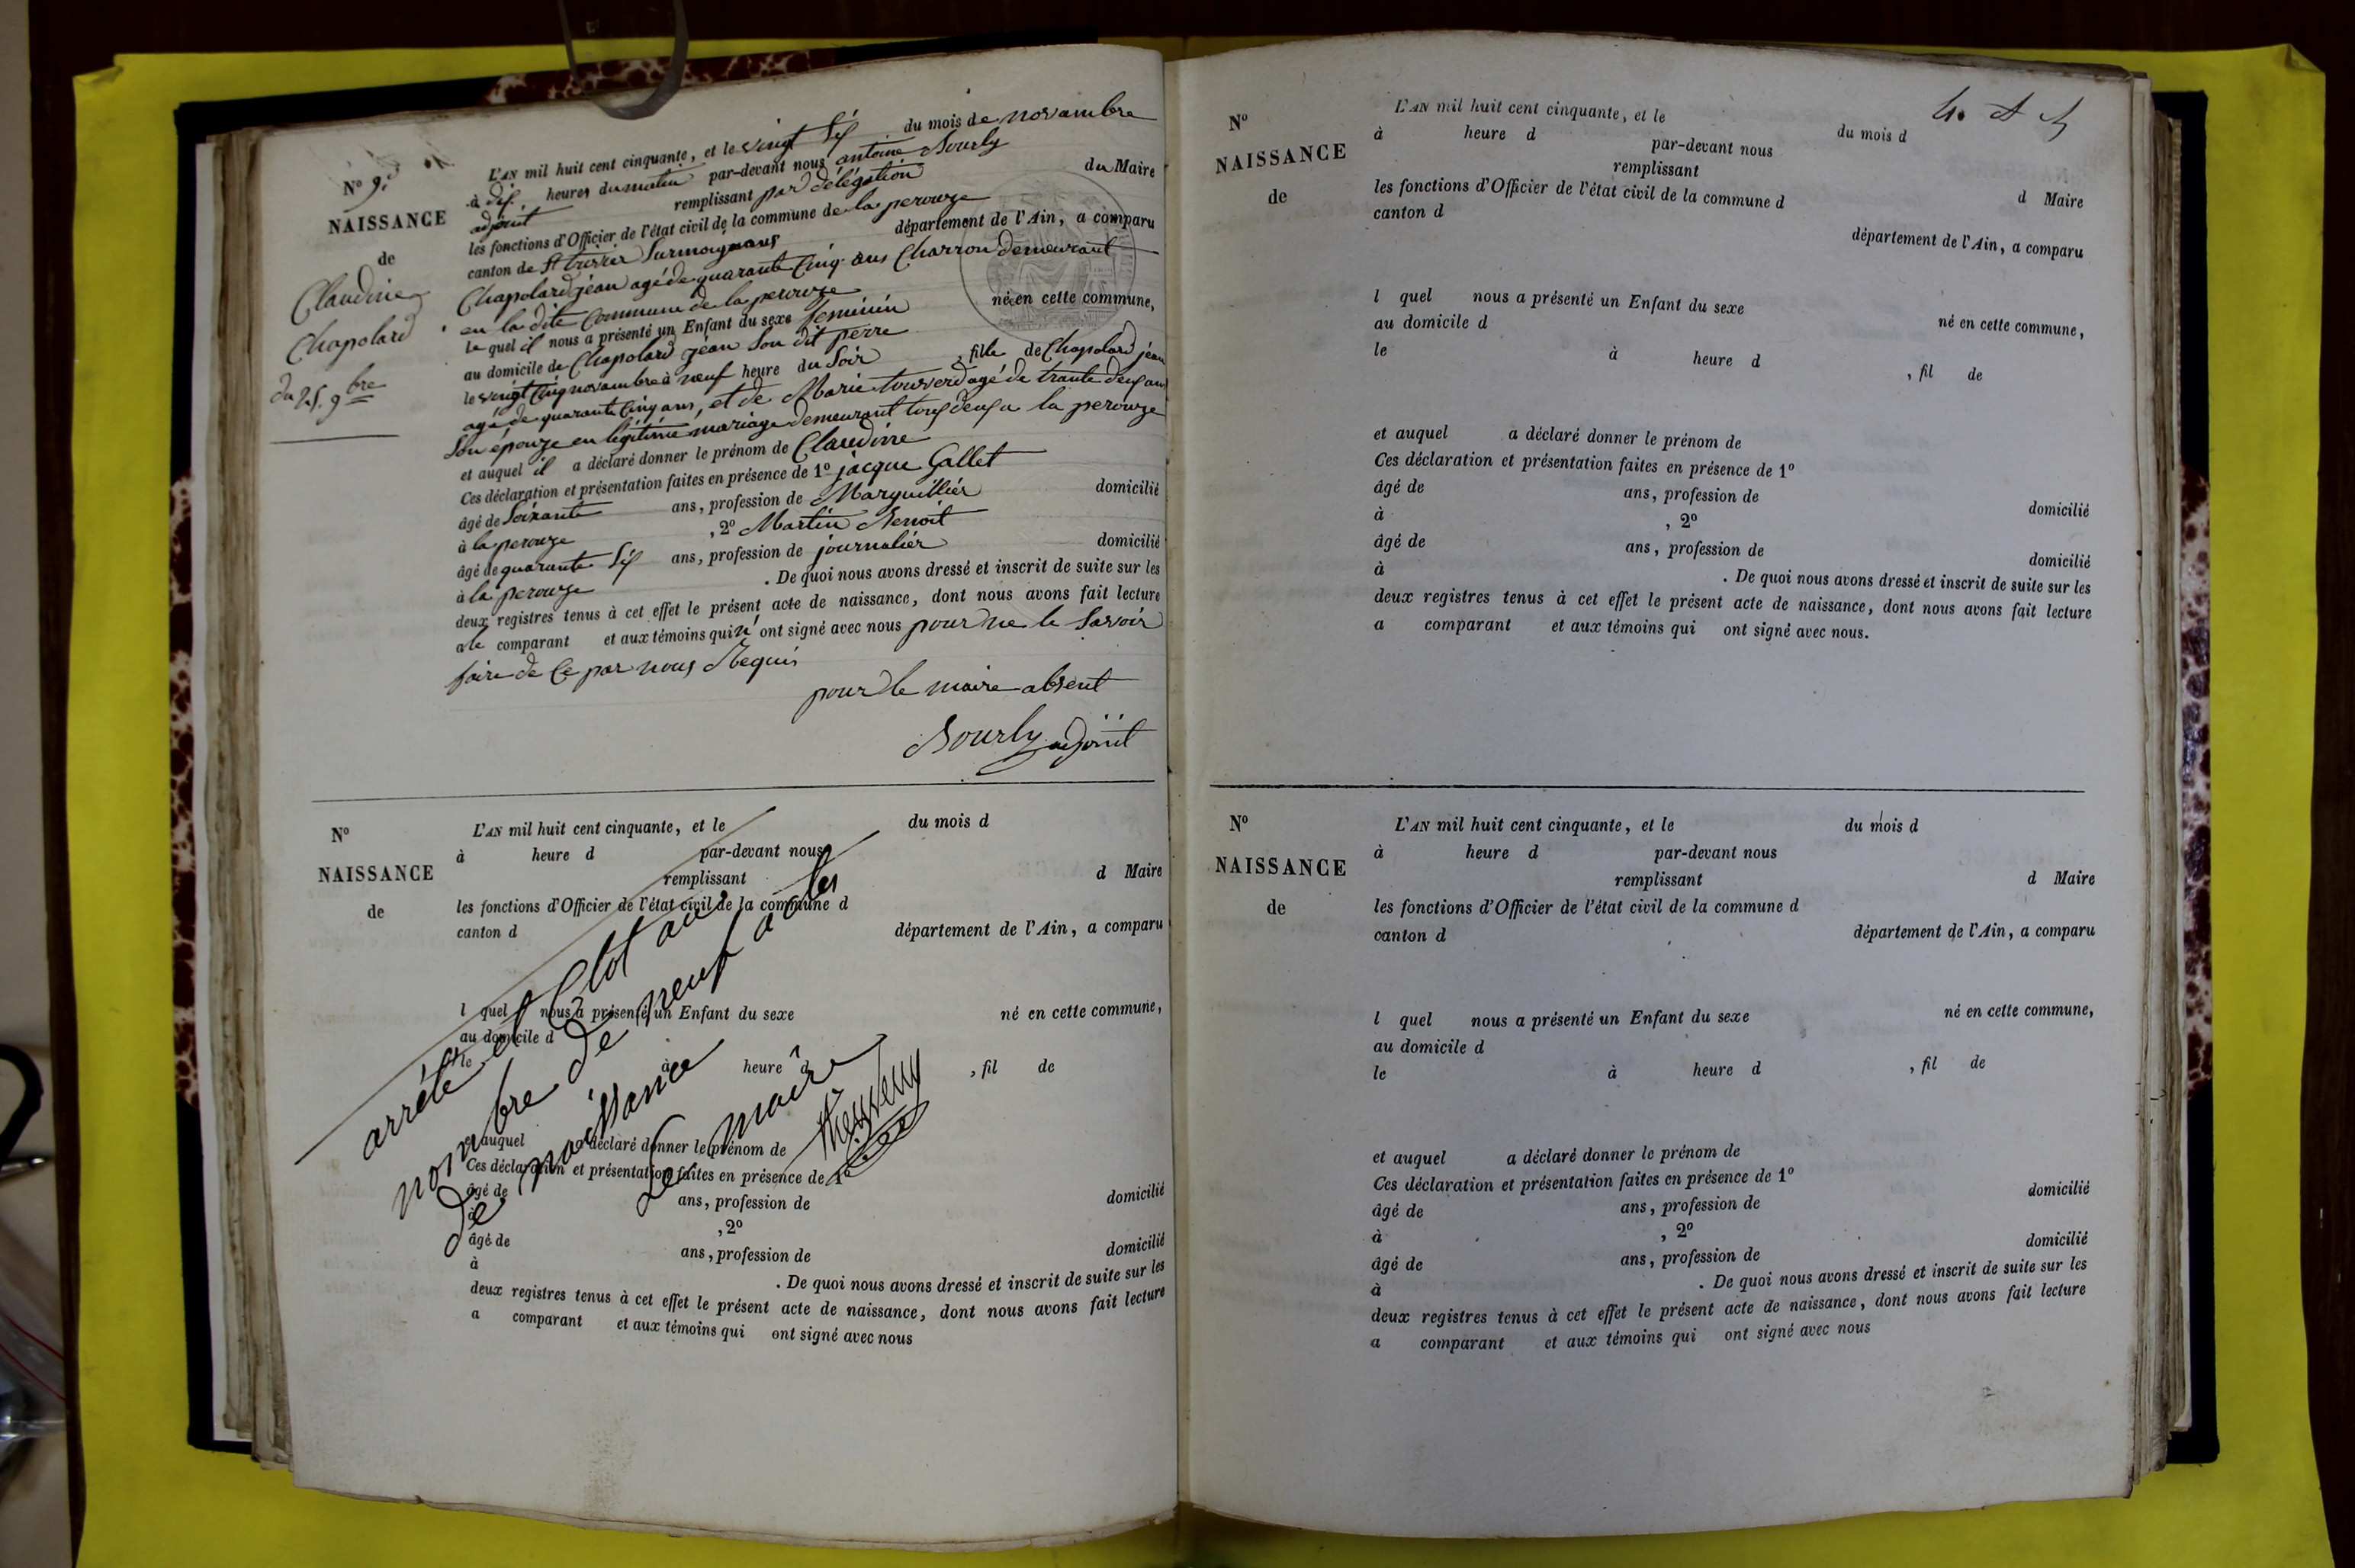 N° 9.
NAISSANCE
de
Claudine
Chapolard
du 25. 9bre
L'AN mil huit cent cinquante, et le vingt sif du mois de novambre
à dif heures du matin par-devant nous antoine Bourly
adjoint remplissant par délégation du Maire
les fonctions d'Officier de l'état civil de la commune de la perouze
canton de St trivier Surmoignans département de l'Ain, a comparu
Chapolard jéan agé de quarante Cinq ans Charron demeurant
en la dite Commune de la perouze
le quel il nous a présenté un Enfant du sexe feminin né en cette commune,
au domicile de Chapolard jéan Son dit perre
le vingt Cinq novambre à neuf heure du Soir, fille de Chapolard jean
agé de quarante Cinq ans, et de Marie tourverd agé de trante deuf ans
Son épouze en légitime mariage demeurant tous deuf a la perouze
et auquel il a déclaré donner le prénom de Claudine
Ces déclaration et présentation faites en présence de 1° jacque Gallet
âgé de Soixante ans, profession de Marguillier domicilié
à la perouze, 2° Martin Benoit
âgé de quarante Sif ans, profession de journalier domicilié
à la perouze. De quoi nous avons dressé et inscrit de suite sur les
deux registres tenus à cet effet le présent acte de naissance, dont nous avons fait lecture
a le comparant et aux témoins qui n'ont signé avec nous pour ne le Savoir
faire de Ce par nous Requis
pour le maire absent
Bourly adjoint
N°
NAISSANCE
de
L'AN mil huit cent cinquante, et le du mois d
à heure d par-devant nous
remplissant d Maire
les fonctions d'Officier de l'état civil de la commune d
canton d département de l'Ain, a comparu
l quel nous a présenté un Enfant du sexe né en cette commune,
au domicile d
le à heure d, fil de
et auquel a déclaré donner le prénom de
Ces déclaration et présentation faites en présence de 1°
âgé de ans, profession de domicilié
à, 2°
âgé de ans, profession de domicilié
à. De quoi nous avons dressé et inscrit de suite sur les
deux registres tenus à cet effet le présent acte de naissance, dont nous avons fait lecture
a comparant et aux témoins qui ont signé avec nous
arrété et Clot au
nombre de neuf actes
de naissance
Le maire
N°
NAISSANCE
de
L'AN mil huit cent cinquante, et le du mois d
à heure d par-devant nous
remplissant d Maire
les fonctions d'Officier de l'état civil de la commune d
canton d département de l'Ain, a comparu
l quel nous a présenté un Enfant du sexe né en cette commune,
au domicile d
le à heure d, fil de
et auquel a déclaré donner le prénom de
Ces déclaration et présentation faites en présence de 1°
âgé de ans, profession de domicilié
à, 2°
âgé de ans, profession de domicilié
à. De quoi nous avons dressé et inscrit de suite sur les
deux registres tenus à cet effet le présent acte de naissance, dont nous avons fait lecture
a comparant et aux témoins qui ont signé avec nous.
N°
NAISSANCE
de
L'AN mil huit cent cinquante, et le du mois d
à heure d par-devant nous
remplissant d Maire
les fonctions d'Officier de l'état civil de la commune d
canton d département de l'Ain, a comparu
l quel nous a présenté un Enfant du sexe né en cette commune,
au domicile d
le à heure d, fil de
et auquel a déclaré donner le prénom de
Ces déclaration et présentation faites en présence de 1°
âgé de ans, profession de domicilié
à, 2°
âgé de ans, profession de domicilié
à. De quoi nous avons dressé et inscrit de suite sur les
deux registres tenus à cet effet le présent acte de naissance, dont nous avons fait lecture
a comparant et aux témoins qui ont signé avec nous